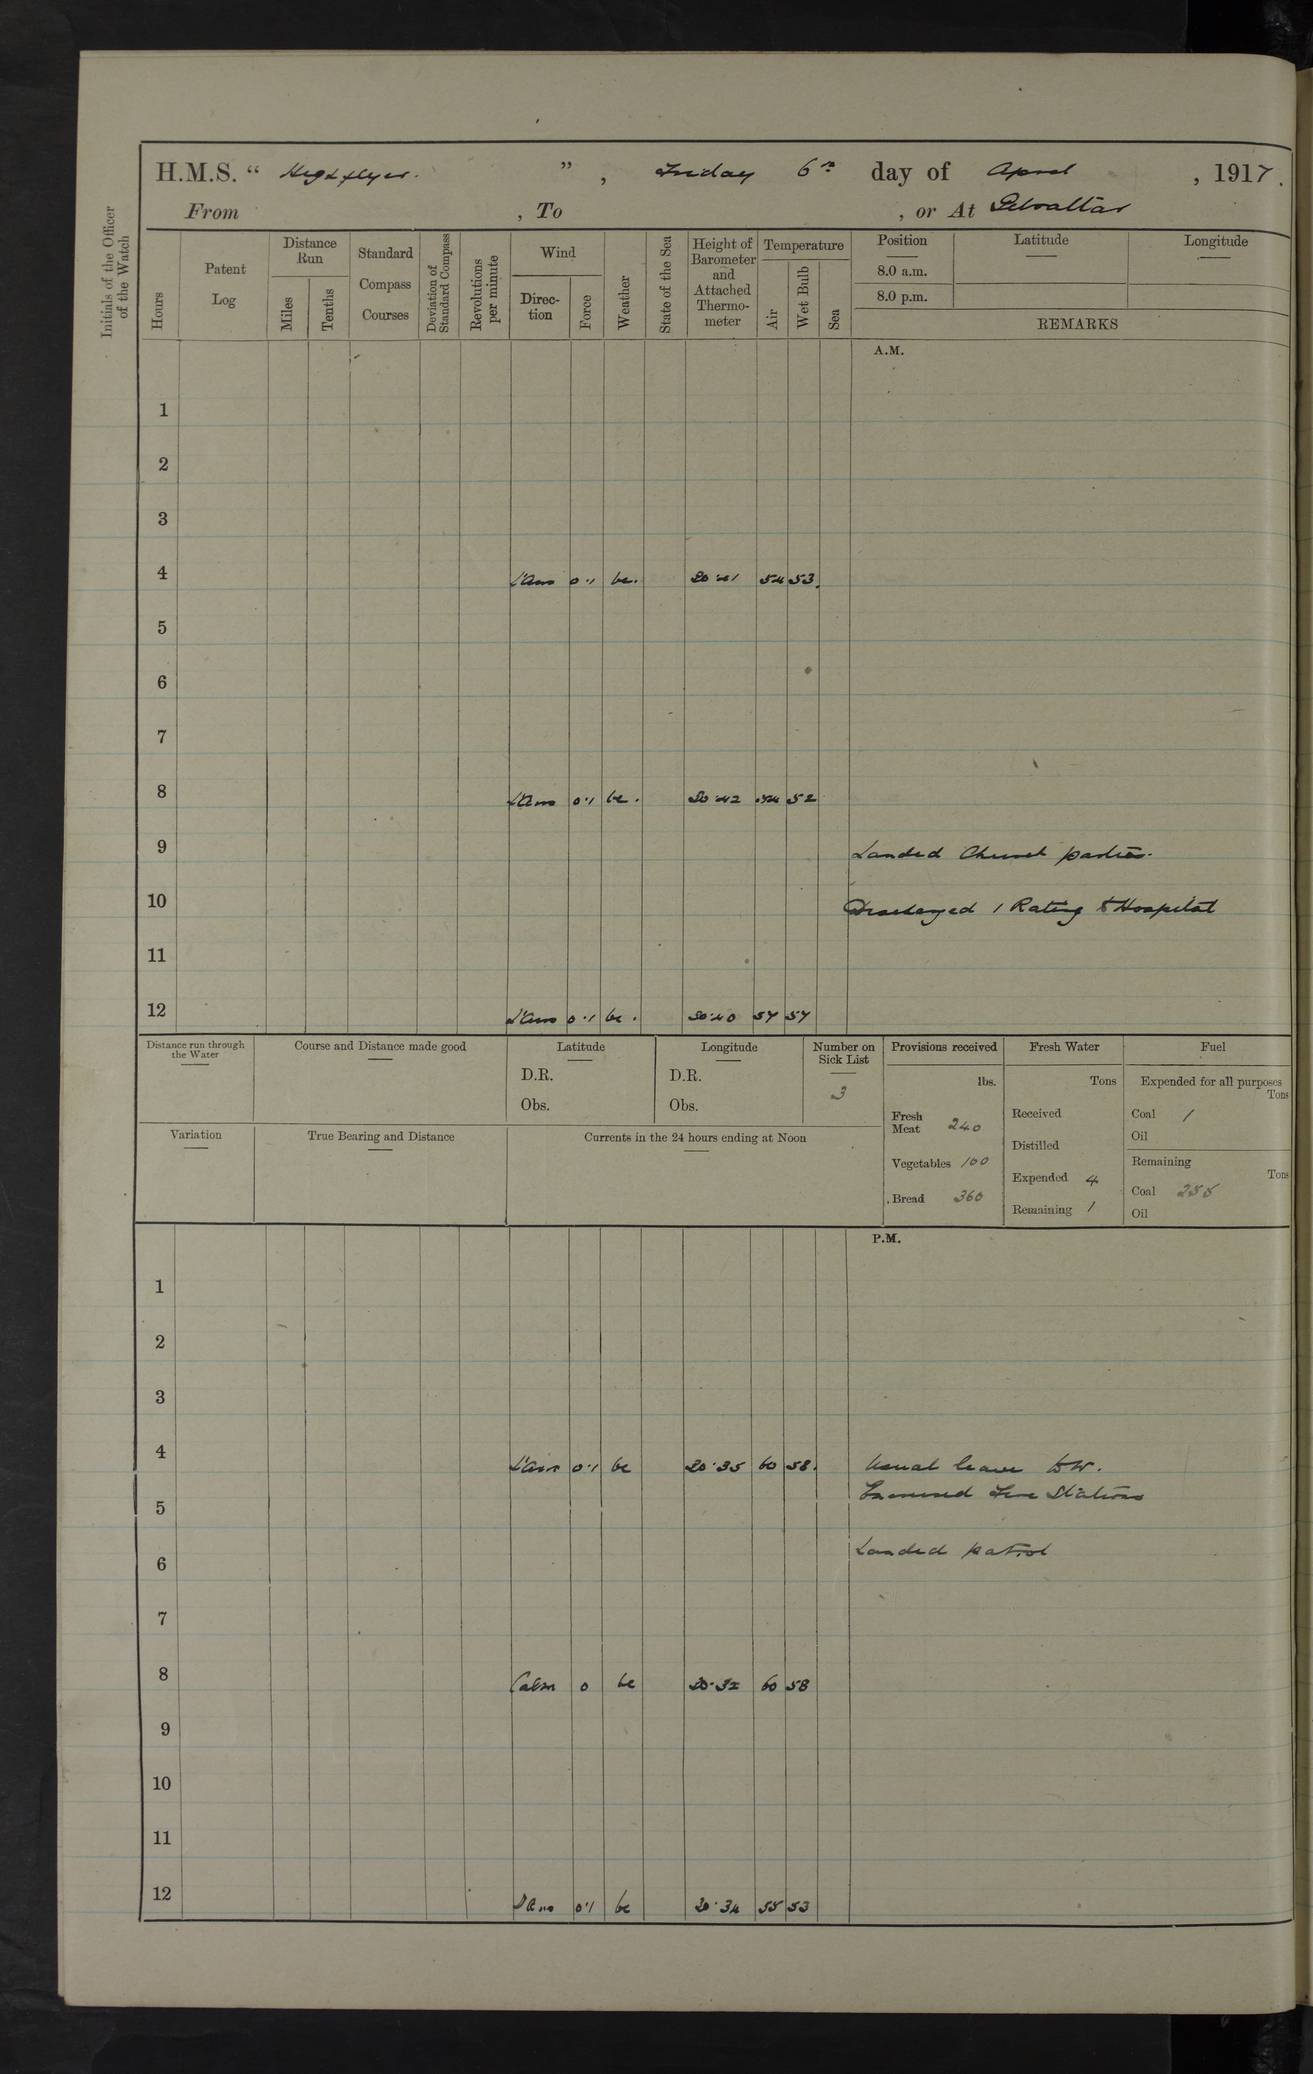 H.M.S. " Highflyer. ", Friday 6th day of April, 1917.
From , To , or At Gibraltar
Initials of the Officer of the Watch
Hours
Patent Log
Distance Run
Miles
Tenths
Standard Compass Courses
Deviation of Standard Compass
Revolutions per minute
Wind
Direction
Force
Weather
State of the Sea
Height of Barometer and Attached Thermometer
Temperature
Air
Wet Bulb
Sea
Position Latitude Longitude
8.0 a.m.
8.0 p.m.
REMARKS
A.M.
1
2
3
4 L'Airs 0.1 bc. 30.41 54 53.
5
6
7
8 L'Airs 0.1 bc. 30.42 54 52
9 Landed Church parties.
10 Discharged 1 Rating to Hospital
11
12 L'Airs 0.1 bc. 30.40 57 57
Distance run through the Water
Course and Distance made good
Latitude
D.R.
Obs.
Longitude
D.R.
Obs.
Number on Sick List
3
Provisions received
lbs.
Fresh Meat 240
Vegetables 100
Bread 360
Fresh Water
Tons
Received
Distilled
Expended 4
Remaining 1
Fuel
Expended for all purposes
Tons
Coal 1
Oil
Remaining
Tons
Coal 255
Oil
Variation
True Bearing and Distance
Currents in the 24 hours ending at Noon
P.M.
1
2
3
4 L'Airs 0.1 bc 30.35 60 58. Usual leave to W.
Exercised Fire Stations
5
6 Landed patrol
7
8 Calm 0 bc 30.32 60 58
9
10
11
12 L'Airs 0.1 bc 30.34 55 53